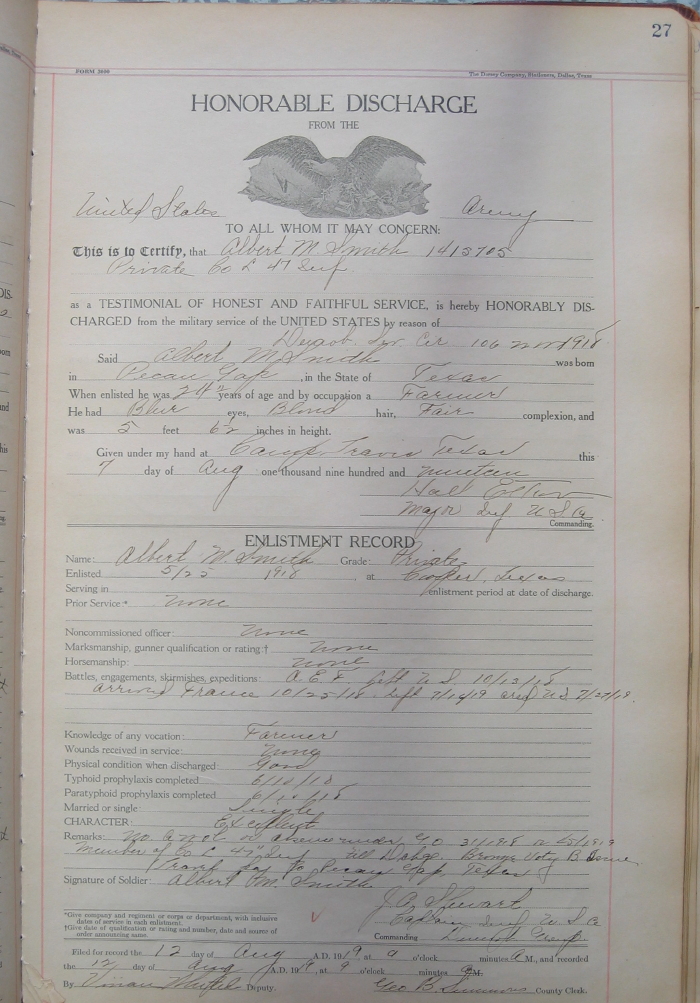 27
FORM 2000
The Dorsey Company, Stationers, Dallas, Texas
HONORABLE DISCHARGE
FROM THE
United States Army
TO ALL WHOM IT MAY CONCERN:
This is to Certify, that Albert M Smith 1415705
Private Co L 47 Inf
as a TESTIMONIAL OF HONEST AND FAITHFUL SERVICE, is hereby HONORABLY DIS-
CHARGED from the military service of the UNITED STATES by reason of
Demob. Cir 106 1918
Said Albert M Smith was born
in Pecan Gap, in the State of Texas
When enlisted he was years of age and by occupation a Farmer
He had Blue eyes, Blond hair, Fair complexion, and
was 5 feet 6½ inches in height.
Given under my hand at Camp Travis Texas this
7 day of Aug one thousand nine hundred and nineteen
Major Inf U S A
Commanding.
ENLISTMENT RECORD
Name: Albert M. Smith Grade: Private
Enlisted 5/25 1918, at Cooper, Texas
Serving in enlistment period at date of discharge.
Prior Service:* None
Noncommissioned officer: None
Marksmanship, gunner qualification or rating:† None
Horsemanship: None
Battles, engagements, skirmishes, expeditions: A.E.F. left U.S. 10/13/18
arrived France 10/25/18 left 7/19/19 arvd US 7/27/19.
Knowledge of any vocation: Farmer
Wounds received in service: None
Physical condition when discharged: Good
Typhoid prophylaxis completed 6/18/18
Paratyphoid prophylaxis completed 6/18/18
Married or single: Single
CHARACTER: Excellent
Remarks: No A.W.O.L. or absence under GO 31/1918 or 45/1919
Member of Co L 47" Inf till Dischge. Bronze Victy B Issue
Travel pay to Pecan Gap, Texas
Signature of Soldier: Albert M. Smith
J. Stewart
Captain Inf U.S.A
Commanding Demob Group.
*Give company and regiment or corps or department, with inclusive
dates of service in each enlistment.
†Give date of qualification or rating and number, date and source of
order announcing same.
Filed for record the 12 day of Aug A.D. 1919 at 9 o'clock minutes A M., and recorded
the 12 day of Aug A.D. 1919, at 9 o'clock minutes A M.
By Vivian Deputy. Geo B. Simmons County Clerk.